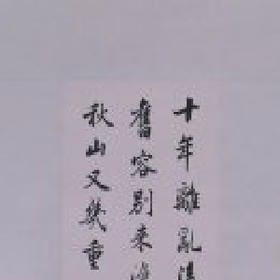 十年離亂
舊容別來
秋山又幾重